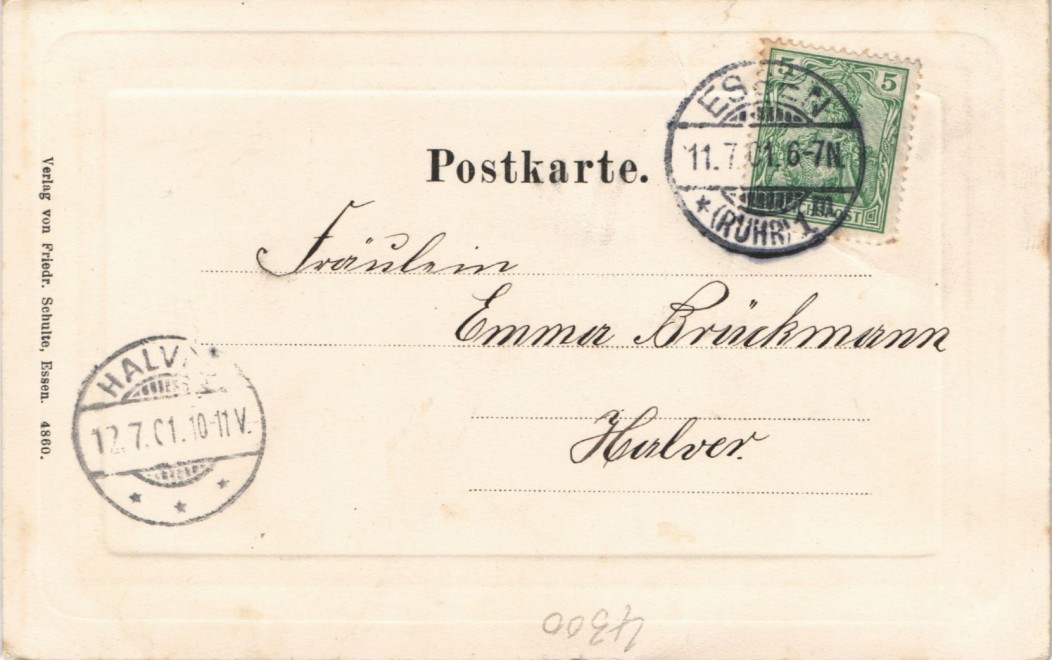 Postkarte.
5 5
ESSEN
11.7.01. 6-7N.
* (RUHR) 1 m
Fräulein
Emma Brückmann
Halver.
HALV
12.7.01.10-11V.
Verlag von Friedr. Schulte, Essen. 4860.
4300